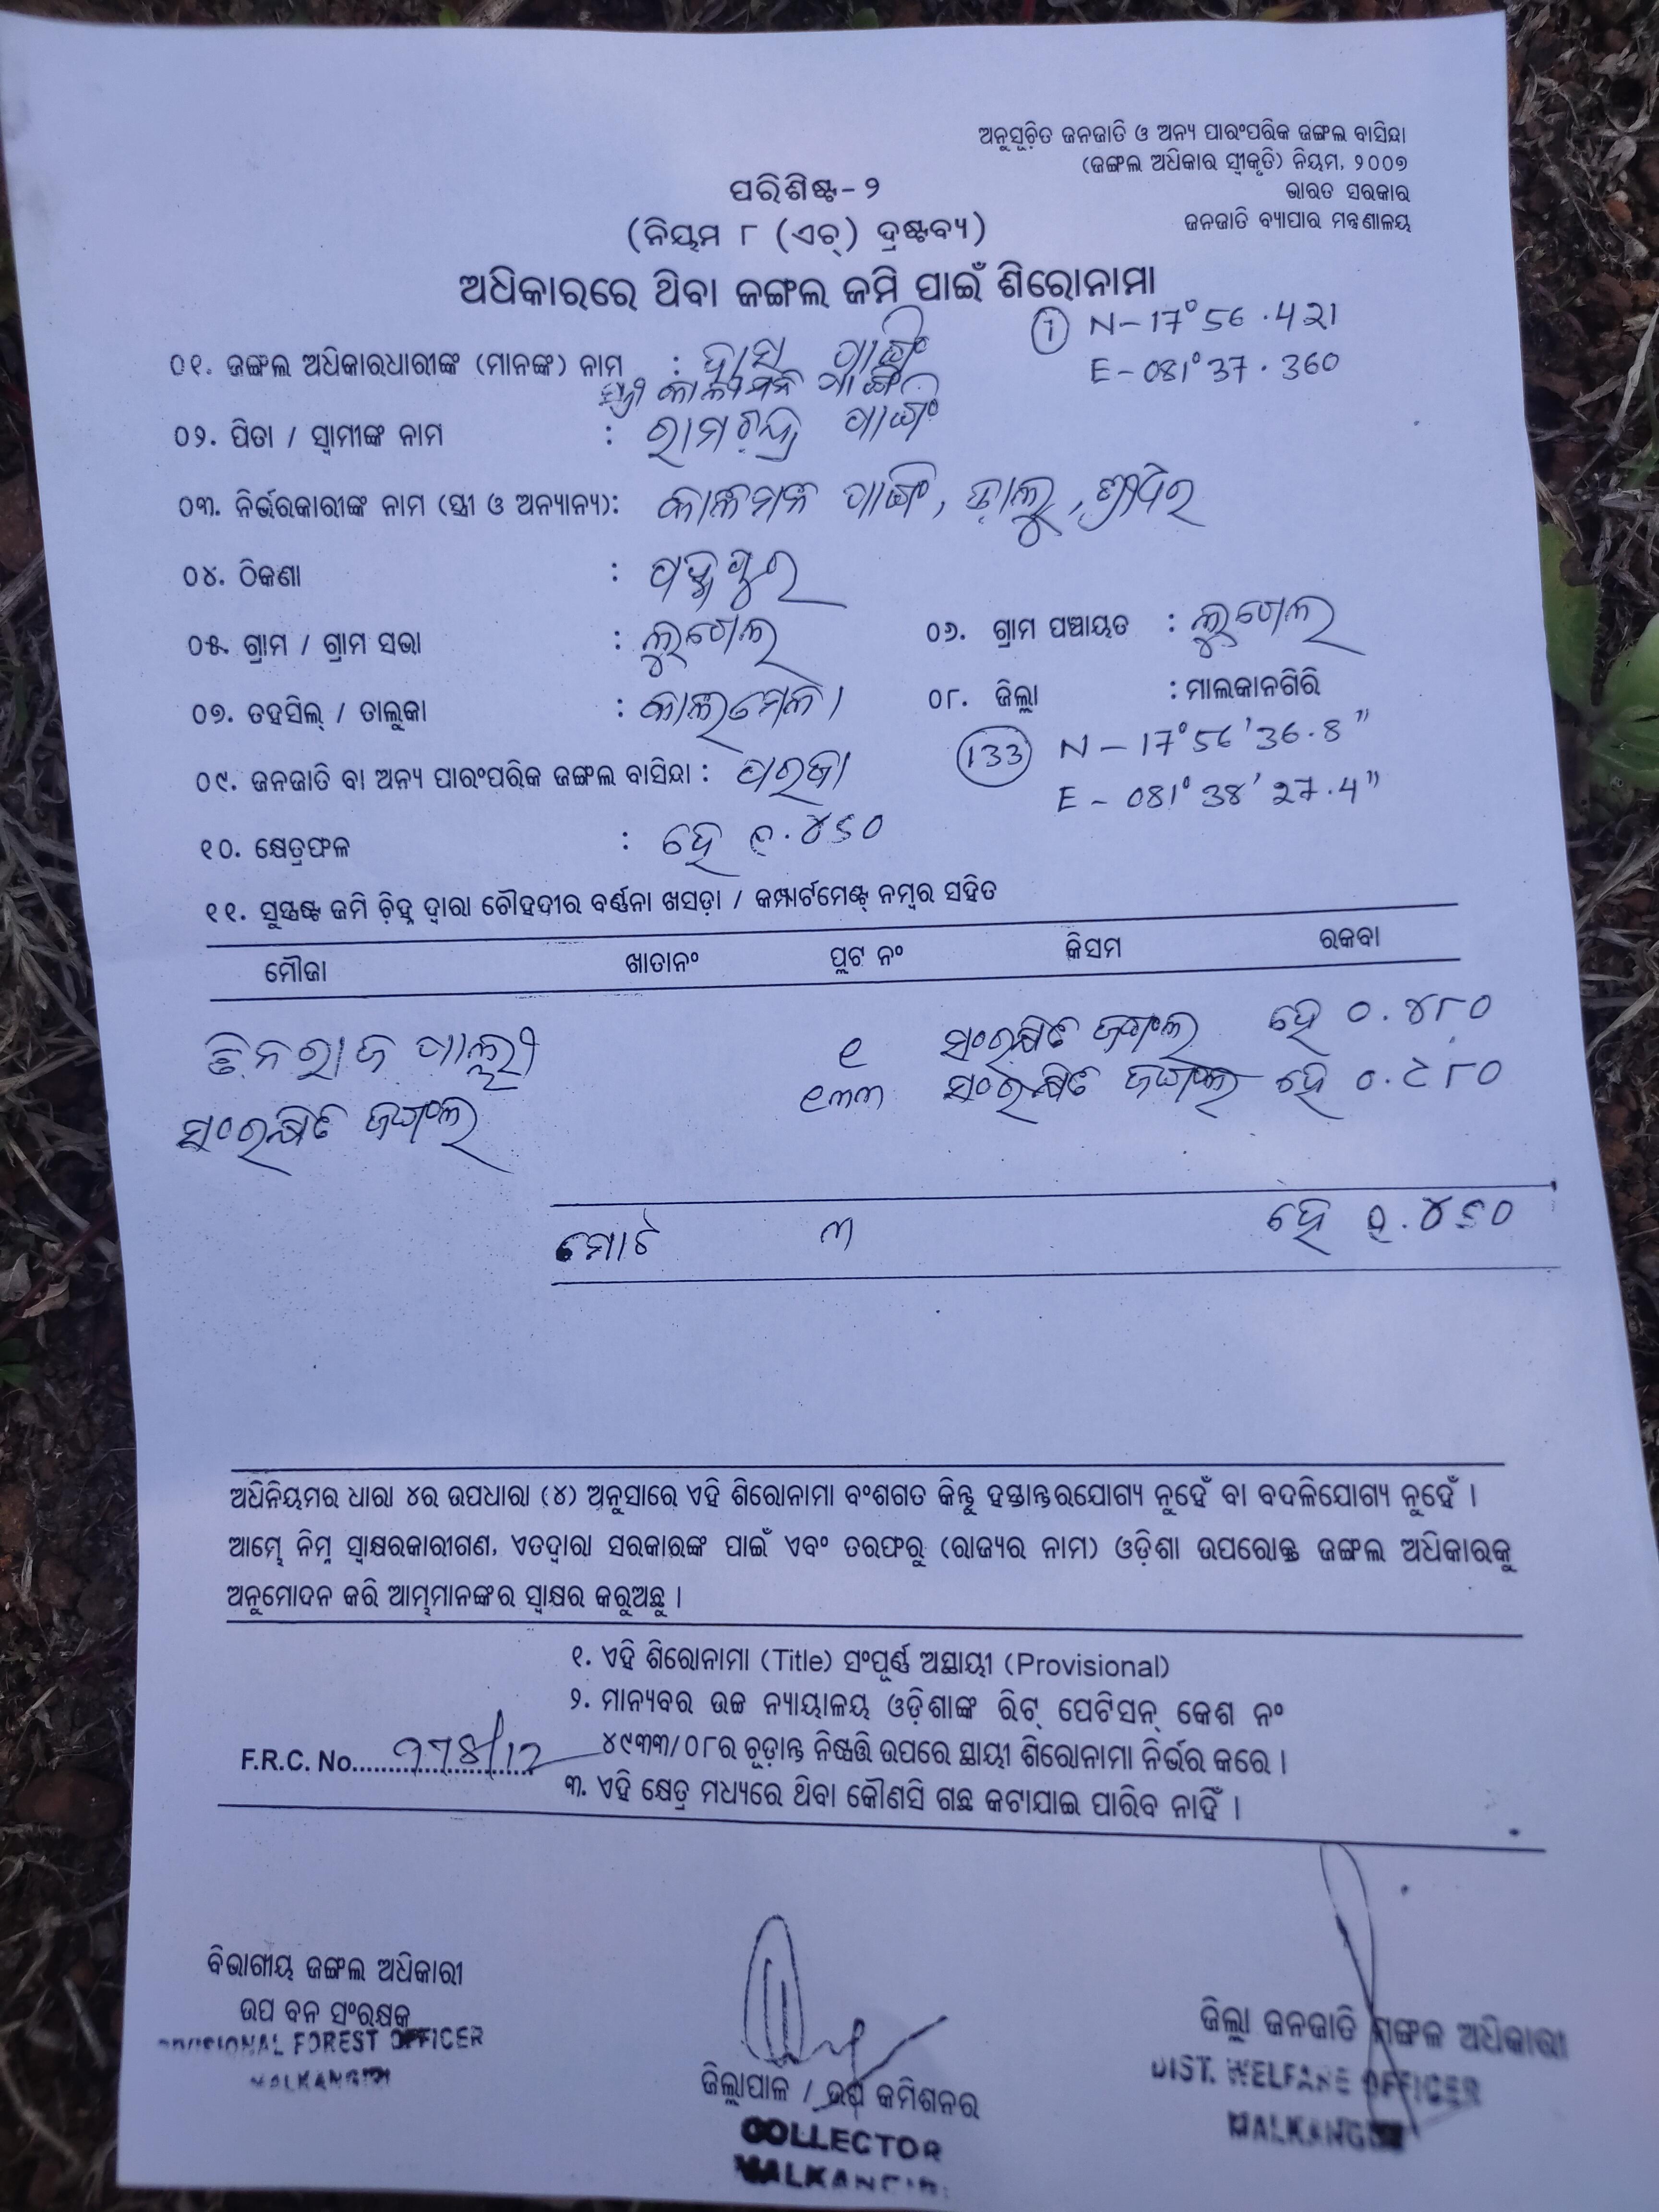 ଅନୁସୂଚିତ ଜନଜାତି ଓ ଅନ୍ୟ ପାରଂପରିକ ଜଙ୍ଗଲ ବାସିନ୍ଦା
(ଜଙ୍ଗଲ ଅଧିକାର ସ୍ୱୀକୃତି) ନିୟମ, ୨୦୦୭
ଭାରତ ସରକାର
ଜନଜାତି ବ୍ୟାପାର ମନ୍ତ୍ରଣାଳୟ
ପରିଶିଷ୍ଟ-୨
(ନିୟମ ୮ (ଏଚ୍) ଦ୍ରଷ୍ଟବ୍ୟ)
ଅଧିକାରରେ ଥିବା ଜଙ୍ଗଲ ଜମି ପାଇଁ ଶିରୋନାମା
① N-17°56.421
E-081°37.360
୦୧. ଜଙ୍ଗଲ ଅଧିକାରଧାରୀଙ୍କ (ମାନଙ୍କ) ନାମ :
୦୨. ପିତା / ସ୍ୱାମୀଙ୍କ ନାମ : ରାମଚନ୍ଦ୍ର ପାଙ୍ଗି
୦୩. ନିର୍ଭରକାରୀଙ୍କ ନାମ (ସ୍ତ୍ରୀ ଓ ଅନ୍ୟାନ୍ୟ):
୦୪. ଠିକଣା : ପଦ୍ମପୁର
୦୫. ଗ୍ରାମ / ଗ୍ରାମ ସଭା : ଲୁଗେଲ
୦୬. ଗ୍ରାମ ପଞ୍ଚାୟତ : ଲୁଗେଲ
୦୭. ତହସିଲ୍ / ତାଲୁକା :
୦୮. ଜିଲ୍ଲା : ମାଲକାନଗିରି
(133) N-17°56'36.8"
E-081°38'27.4"
୦୯. ଜନଜାତି ବା ଅନ୍ୟ ପାରଂପରିକ ଜଙ୍ଗଲ ବାସିନ୍ଦା : ପରଜା
୧୦. କ୍ଷେତ୍ରଫଳ : ହେ ୧.୪୬୦
୧୧. ସୁସ୍ପଷ୍ଟ ଜମି ଚିହ୍ନ ଦ୍ୱାରା ଚୌହଦୀର ବର୍ଣ୍ଣନା ଖସଡ଼ା / କମ୍ପାର୍ଟମେଣ୍ଟ୍ ନମ୍ବର ସହିତ
ମୌଜା ଖାତାନଂ ପ୍ଲଟ ନଂ କିସମ ରକବା
୧ ସଂରକ୍ଷିତ ଜଙ୍ଗଲ ହେ ୦.୪୮୦
୧୩୩ ସଂରକ୍ଷିତ ଜଙ୍ଗଲ ହେ ୦.୯୮୦
ସଂରକ୍ଷିତ ଜଙ୍ଗଲ
ମୋଟ ୩ ହେ ୧.୪୬୦
ଅଧିନିୟମର ଧାରା ୪ର ଉପଧାରା (୪) ଅନୁସାରେ ଏହି ଶିରୋନାମା ବଂଶଗତ କିନ୍ତୁ ହସ୍ତାନ୍ତରଯୋଗ୍ୟ ନୁହେଁ ବା ବଦଳିଯୋଗ୍ୟ ନୁହେଁ ।
ଆମ୍ଭେ ନିମ୍ନ ସ୍ୱାକ୍ଷରକାରୀଗଣ, ଏତଦ୍ୱାରା ସରକାରଙ୍କ ପାଇଁ ଏବଂ ତରଫରୁ (ରାଜ୍ୟର ନାମ) ଓଡ଼ିଶା ଉପରୋକ୍ତ ଜଙ୍ଗଲ ଅଧିକାରକୁ
ଅନୁମୋଦନ କରି ଆମ୍ଭମାନଙ୍କର ସ୍ୱାକ୍ଷର କରୁଅଛୁ ।
୧. ଏହି ଶିରୋନାମା (Title) ସଂପୂର୍ଣ୍ଣ ଅସ୍ଥାୟୀ (Provisional)
୨. ମାନ୍ୟବର ଉଚ୍ଚ ନ୍ୟାୟାଳୟ ଓଡ଼ିଶାଙ୍କ ରିଟ୍ ପେଟିସନ୍ କେଶ ନଂ
୪୯୩୩/୦୮ର ଚୂଡ଼ାନ୍ତ ନିଷ୍ପତ୍ତି ଉପରେ ସ୍ଥାୟୀ ଶିରୋନାମା ନିର୍ଭର କରେ ।
F.R.C. No..........
୩. ଏହି କ୍ଷେତ୍ର ମଧ୍ୟରେ ଥିବା କୌଣସି ଗଛ କଟାଯାଇ ପାରିବ ନାହିଁ ।
ବିଭାଗୀୟ ଜଙ୍ଗଲ ଅଧିକାରୀ
ଉପ ବନ ସଂରକ୍ଷକ
DIVISIONAL FOREST OFFICER
MALKANGIRI
ଜିଲ୍ଲାପାଳ / ଉପ କମିଶନର
COLLECTOR
MALKANGIRI
ଜିଲ୍ଲା ଜନଜାତି ମଙ୍ଗଳ ଅଧିକାରୀ
DIST. WELFARE OFFICER
MALKANGIRI